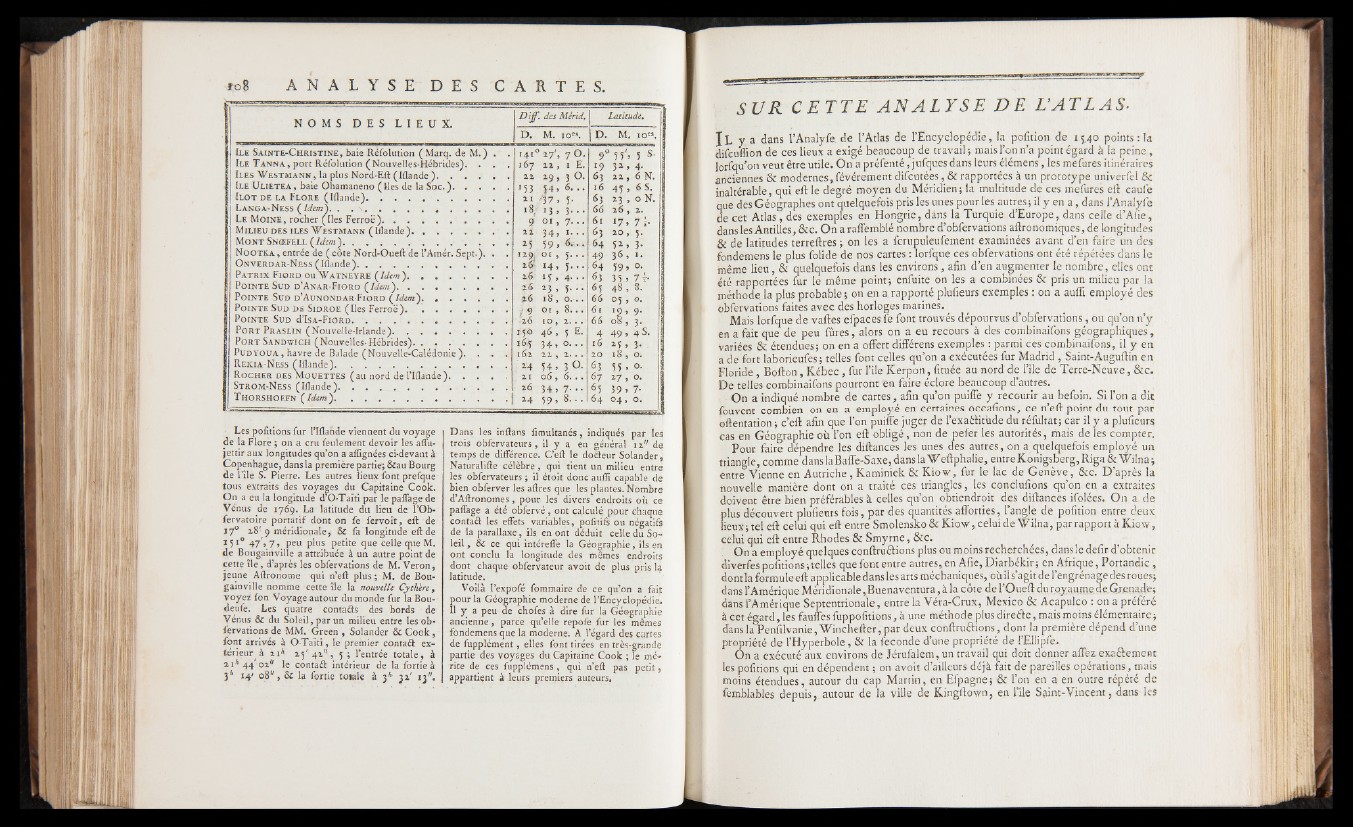 108 ANALYSE DES CARTES.
NOMS DES LIEUX. Diff. des Mérid. Latitude.
D. M. 10es. D. M. 10es.
ÎLE SAINTE-CHRISTINE, baie Réſolution (Marq. de M.) . . 141° 27', 7 O. 9° 55', 5 S.
ÎLE TANNA, port Réſolution (Nouvelles-Hébrides). . . . 167 22, 1 E. 19 32, 4.
ÎLES WESTMANN, la plus Nord-Eſt (Iſlande). . . . . . 22 29, 3 O. 63 22, 6 N.
ÎLE ULIETEA, baie Ohamaneno (Iles de la Soc.). . . . . 153 54, 6... 16 45, 6 S.
ÎLOT DE LA FLORE (Iſlande). . . . . . . . . . 21 37, 5. 63 23, 0 N.
LANGA-NESS (Idem). . . . . . . . . . . . 18 13, 3... 66 26, 2.
LE MOINE, rocher (Iles Ferroë). . . . . . . . . 9 01, 7... 61 17, 7 ½.
MILIEU DES ILES WESTMANN (Iſlande). . . . . . . 22 34, 1... 63 20, 5.
MONT SNŒFELL (Idem). . . . . . . . . . . 25 59, 6... 64 52, 3.
NOOTKA, entrée de (côte Nord-Oueſt de l'Amér. Sept.). . . 129 01, 5... 49 36, 1.
ONVERDAR-NESS (Iſlande). . . . . . . . . . . 26 14, 5... 64 59, 0.
PATRIX FIORD ou WATNEYRE (Idem). . . . . . . 26 15, 4... 65 35, 7 ½.
POINTE SUD D'ANAR-FIORD (Idem). . . . . . . . 26 23, 5... 65 48, 8.
POINTE SUD D'AUNONDAR-FIORD (Idem). . . . . . 26 18, 0... 66 05, 0.
POINTE SUD DE SIDROE (Iles Ferroë). . . . . . . 9 01, 8... 61 19, 9.
POINTE SUD D'ISA-FIORD. . . . . . . . . . . 26 10, 2... 66 08, 3.
PORT PRASLIN (Nouvelle-Irlande). . . . . . . . . 150 46, 5 E. 4 49, 4 S.
PORT SANDWICH (Nouvelles-Hébrides). . . . . . . 165 34, 0... 16 25, 3.
PUDYOUA, havre de Balade (Nouvelle-Calédonie). . . . 162 22, 2... 20 18, 0.
REXIA-NESS (Iſlande). . . . . . . . . . . . 24 54, 3 O. 63 55, 0.
ROCHER DES MOUETTES (au nord de l'Iſlande). . . . . 21 06, 6... 67 27, 0.
STROM-NESS (Iſlande). . . . . . . . . . . . 26 34, 7... 65 39, 7.
THORSHOEFN (Idem). . . . . . . . . . . . 24 59, 8... 64 04, 0.
Les poſitions ſur l'Iſlande viennent du voyage
de la Flore; on a cru ſeulement devoir les aſſu-
jettir aux longitudes qu'on a aſſignées ci-devant à
Copenhague, dans la première partie; & au Bourg
de l'île S. Pierre. Les autres lieux ſont preſque
tous extraits des voyages du Capitaine Cook.
On a eu la longitude d'O-Taïti par le paſſage de
Vénus de 1769. La latitude du lieu de l'Ob-
ſervatoire portatif dont on ſe ſervoit, eſt de
17° 28', 9 méridionale, & ſa longitude eſt de
151° 47', 7, peu plus petite que celle que M.
de Bougainville a attribuée à un autre point de
cette île, d'après les obſervations de M. Veron,
jeune Aſtronome qui n'eſt plus; M. de Bou-
gainville nomme cette île la nouvelle Cythère,
voyez ſon Voyage autour du monde ſur la Bou-
deuſe. Les quatre contacts des bords de
Vénus & du Soleil, par un milieu entre les ob-
ſervations de MM. Green, Solander & Cook,
ſont arrivés à O-Taïti, le premier contact ex-
térieur à 21h 25' 42", 5; l'entrée totale, à
21h 44' 02" le contact intérieur de la ſortie à
3h 14' 08", & la ſortie totale à 3h 32' 13".
Dans les inſtans ſimultanés, indiqués par les
trois obſervateurs, il y a en général 12" de
temps de différence. C'eſt le docteur Solander,
Naturaliſte célèbre, qui tient un milieu entre
les obſervateurs; il étoit donc auſſi capable de
bien obſerver les aſtres que les plantes. Nombre
d'Aſtronomes, pour les divers endroits où ce
paſſage a été obſervé, ont calculé pour chaque
contact les effets variables, poſitifs ou négatifs
de la parallaxe, ils en ont déduit celle du So-
leil, & ce qui intéreſſe la Géographie, ils en
ont conclu la longitude des mêmes endroits
dont chaque obſervateur avoit de plus pris la
latitude.
Voilà l'expoſé ſommaire de ce qu'on a fait
pour la Géographie moderne de l'Encyclopédie.
Il y a peu de choſes à dire ſur la Géographie
ancienne, parce qu'elle repoſe ſur les mêmes
fondemens que la moderne. A l'égard des cartes
de ſupplément, elles ſont tirées en très-grande
partie des voyages du Capitaine Cook; le mé-
rite de ces ſupplémens, qui n'eſt pas petit,
appartient à leurs premiers auteurs.
SUR CETTE ANALYSE DE L'ATLAS.
IL y a dans l'Analyſe de l'Atlas de l'Encyclopédie, la poſition de 1540 points: la
diſcuſſion de ces lieux a exigé beaucoup de travail; mais l'on n'a point égard à la peine,
lorſqu'on veut être utile. On a préſenté, juſques dans leurs élémens, les meſures itinéraires
anciennes & modernes, ſévérement diſcutées, & rapportées à un prototype univerſel &
inaltérable, qui eſt le degré moyen du Méridien; la multitude de ces meſures eſt cauſe
que des Géographes ont quelquefois pris les unes pour les autres; il y en a, dans l'Analyſe
de cet Atlas, des exemples en Hongrie, dans la Turquie d'Europe, dans celle d'Aſie,
dans les Antilles, &c. On a raſſemblé nombre d'obſervations aſtronomiques, de longitudes
& de latitudes terreſtres; on les a ſcrupuleuſement examinées avant d'en faire un des
fondemens le plus ſolide de nos cartes: lorſque ces obſervations ont été répétées dans le
même lieu, & quelquefois dans les environs, afin d'en augmenter le nombre, elles ont
été rapportées ſur le même point; enſuite on les a combinées & pris un milieu par la
méthode la plus probable; on en a rapporté pluſieurs exemples: on a auſſi employé des
obſervations faites avec des horloges marines.
Mais lorſque de vaſtes eſpaces ſe ſont trouvés dépourvus d'obſervations, ou qu'on n'y
en a fait que de peu ſûres, alors on a eu recours à des combinaiſons géographiques,
variées & étendues; on en a offert différens exemples: parmi ces combinaiſons, il y en
a de fort laborieuſes; telles ſont celles qu'on a exécutées ſur Madrid, Saint-Auguſtin en
Floride, Boſton, Kébec, ſur l'île Kerpon, ſituée au nord de l'île de Terre-Neuve, &c.
De telles combinaiſons pourront en faire éclore beaucoup d'autres.
On a indiqué nombre de cartes, afin qu'on puiſſe y recourir au beſoin. Si l'on a dit
ſouvent combien on en a employé en certaines occaſions, ce n'eſt point du tout par
oſtentation; c'eſt afin que l'on puiſſe juger de l'exactitude du réſultat; car il y a pluſieurs
cas en Géographie où l'on eſt obligé, non de peſer les autorités, mais de les compter.
Pour faire dépendre les diſtances les unes des autres, on a quelquefois employé un
triangle, comme dans la Baſſe-Saxe, dans la Weſtphalie, entre Konigsberg, Riga & Wilna;
entre Vienne en Autriche, Kaminiek & Kiow, ſur le lac de Genève, &c. D'après la
nouvelle manière dont on a traité ces triangles, les concluſions qu'on en a extraites
doivent être bien préférables à celles qu'on obtiendroit des diſtances iſolées. On a de
plus découvert pluſieurs fois, par des quantités aſſorties, l'angle de poſition entre deux
lieux; tel eſt celui qui eſt entre Smolensko & Kiow, celui de Wilna, par rapport à Kiow,
celui qui eſt entre Rhodes & Smyrne, &c.
On a employé quelques conſtructions plus ou moins recherchées, dans le deſir d'obtenir
diverſes poſitions; telles que ſont entre autres, en Aſie, Diarbékir; en Afrique, Portandic,
dont la formule eſt applicable dans les arts méchaniques, où il s'agit de l'engrénage des roues;
dans l'Amérique Méridionale, Buenaventura, à la côte de l'Oueſt du royaume de Grenade;
dans l'Amérique Septentrionale, entre la Véra-Crux, Mexico & Acapulco: on a préféré
à cet égard, les fauſſes ſuppoſitions, à une méthode plus directe, mais moins élémentaire;
dans la Penſilvanie, Wincheſter, par deux conſtructions, dont la première dépend d'une
propriété de l'Hyperbole, & la ſeconde d'une propriété de l'Ellipſe.
On a exécuté aux environs de Jéruſalem, un travail qui doit donner aſſez exactement
les poſitions qui en dépendent; on avoit d'ailleurs déjà fait de pareilles opérations, mais
moins étendues, autour du cap Martin, en Eſpagne; & l'on en a en outre répété de
ſemblables depuis, autour de la ville de Kingſtown, en l'île Saint-Vincent, dans les